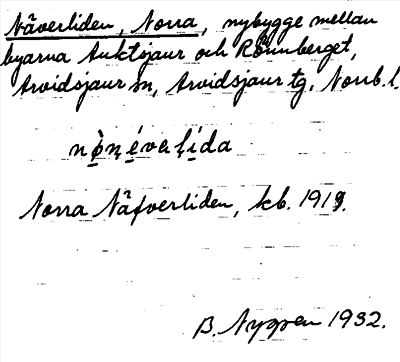 Näverliden, Norra, nybygge mellan
byarna Auktsjaur och Rönnberget,
Arvidsjaur sn, Arvidsjaur tg. Norrb. l.
Norra Näfverliden, kb. 1919.
B. Nygren 1932.